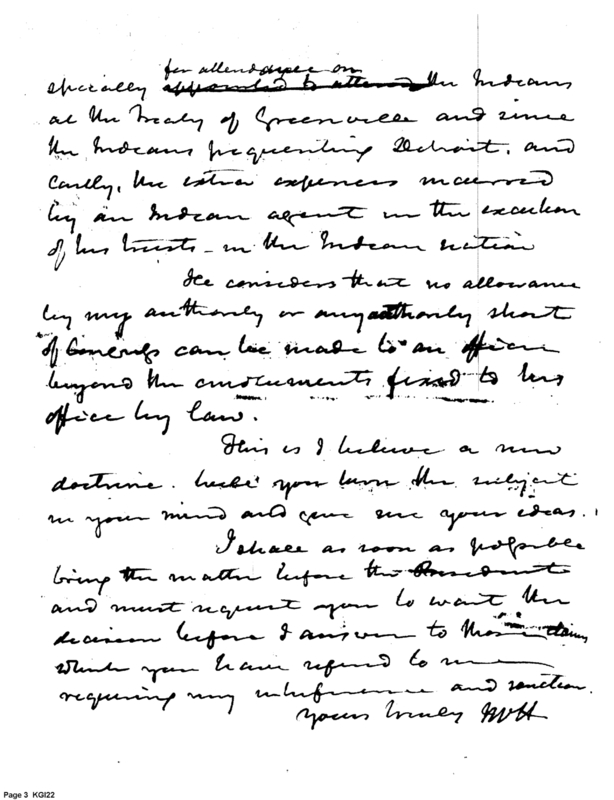 for attendance on
specially appointed to attend the Indians
at the Treaty of Greenville and since
the Indians frequenting Detroit, and
Lastly, the extra expences incurred
by an Indian agent in the execution
of his trusts - in the Indian nation
He considers that no allowance
by my authority or any authority short
of Congress can be made to an officer
beyond the emoluments fixed to his
office by law.
This is I believe a new
doctrine. Will you turn the subject
in your mind and give me your ideas.
I shall as soon as possible
bring the matter before the President
and must request you to wait the
decision before I answer to those claims
which you have referred to me
requiring my interference and sanction.
Yours truly
Page 3 KGI22